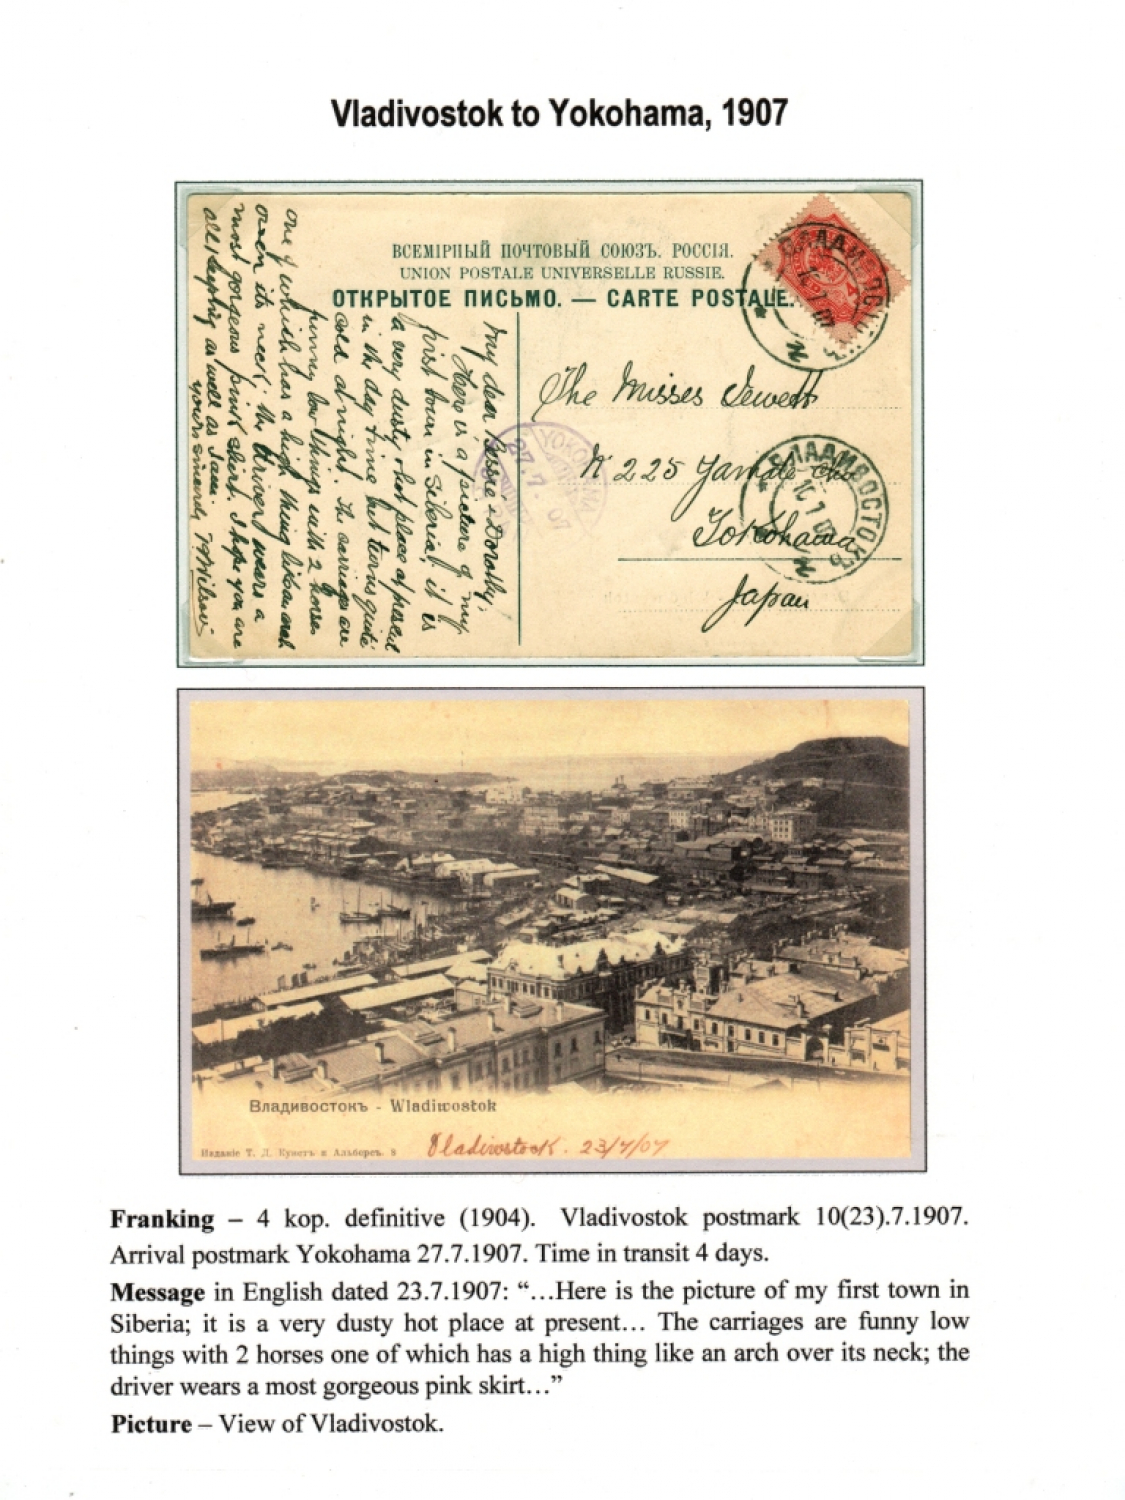 Vladivostok to Yokohama, 1907
ВСЕМІРНЫЙ ПОЧТОВЫЙ СОЮЗЪ. РОССІЯ.
UNION POSTALE UNIVERSELLE RUSSIE.
ОТКРЫТОЕ ПИСЬМО. — CARTE POSTALE.
ВЛАДИВОСТОКЪ
10 7 07
The Misses Jewett
No 225 Yamate-cho
Yokohama
Japan
ВЛАДИВОСТОКЪ
10 7 07
YOKOHAMA
27.7.07
My dear Bessie & Dorothy,
Here is a picture of my
first town in Siberia; it is
a very dusty & hot place at present
in the day time but turns quite
cold at night. The carriages are
funny low things with 2 horses
one of which has a high thing like an arch
over its neck; the driver wears a
most gorgeous pink skirt. I hope you are
all keeping as well as I am.
yours sincerely
Владивостокъ - Wladiwostok
Изданіе Т. Д. Кунстъ и Альберсъ. 8
Vladivostock. 23/7/07
Franking – 4 kop. definitive (1904). Vladivostok postmark 10(23).7.1907.
Arrival postmark Yokohama 27.7.1907. Time in transit 4 days.
Message in English dated 23.7.1907: “…Here is the picture of my first town in
Siberia; it is a very dusty hot place at present… The carriages are funny low
things with 2 horses one of which has a high thing like an arch over its neck; the
driver wears a most gorgeous pink skirt…”
Picture – View of Vladivostok.